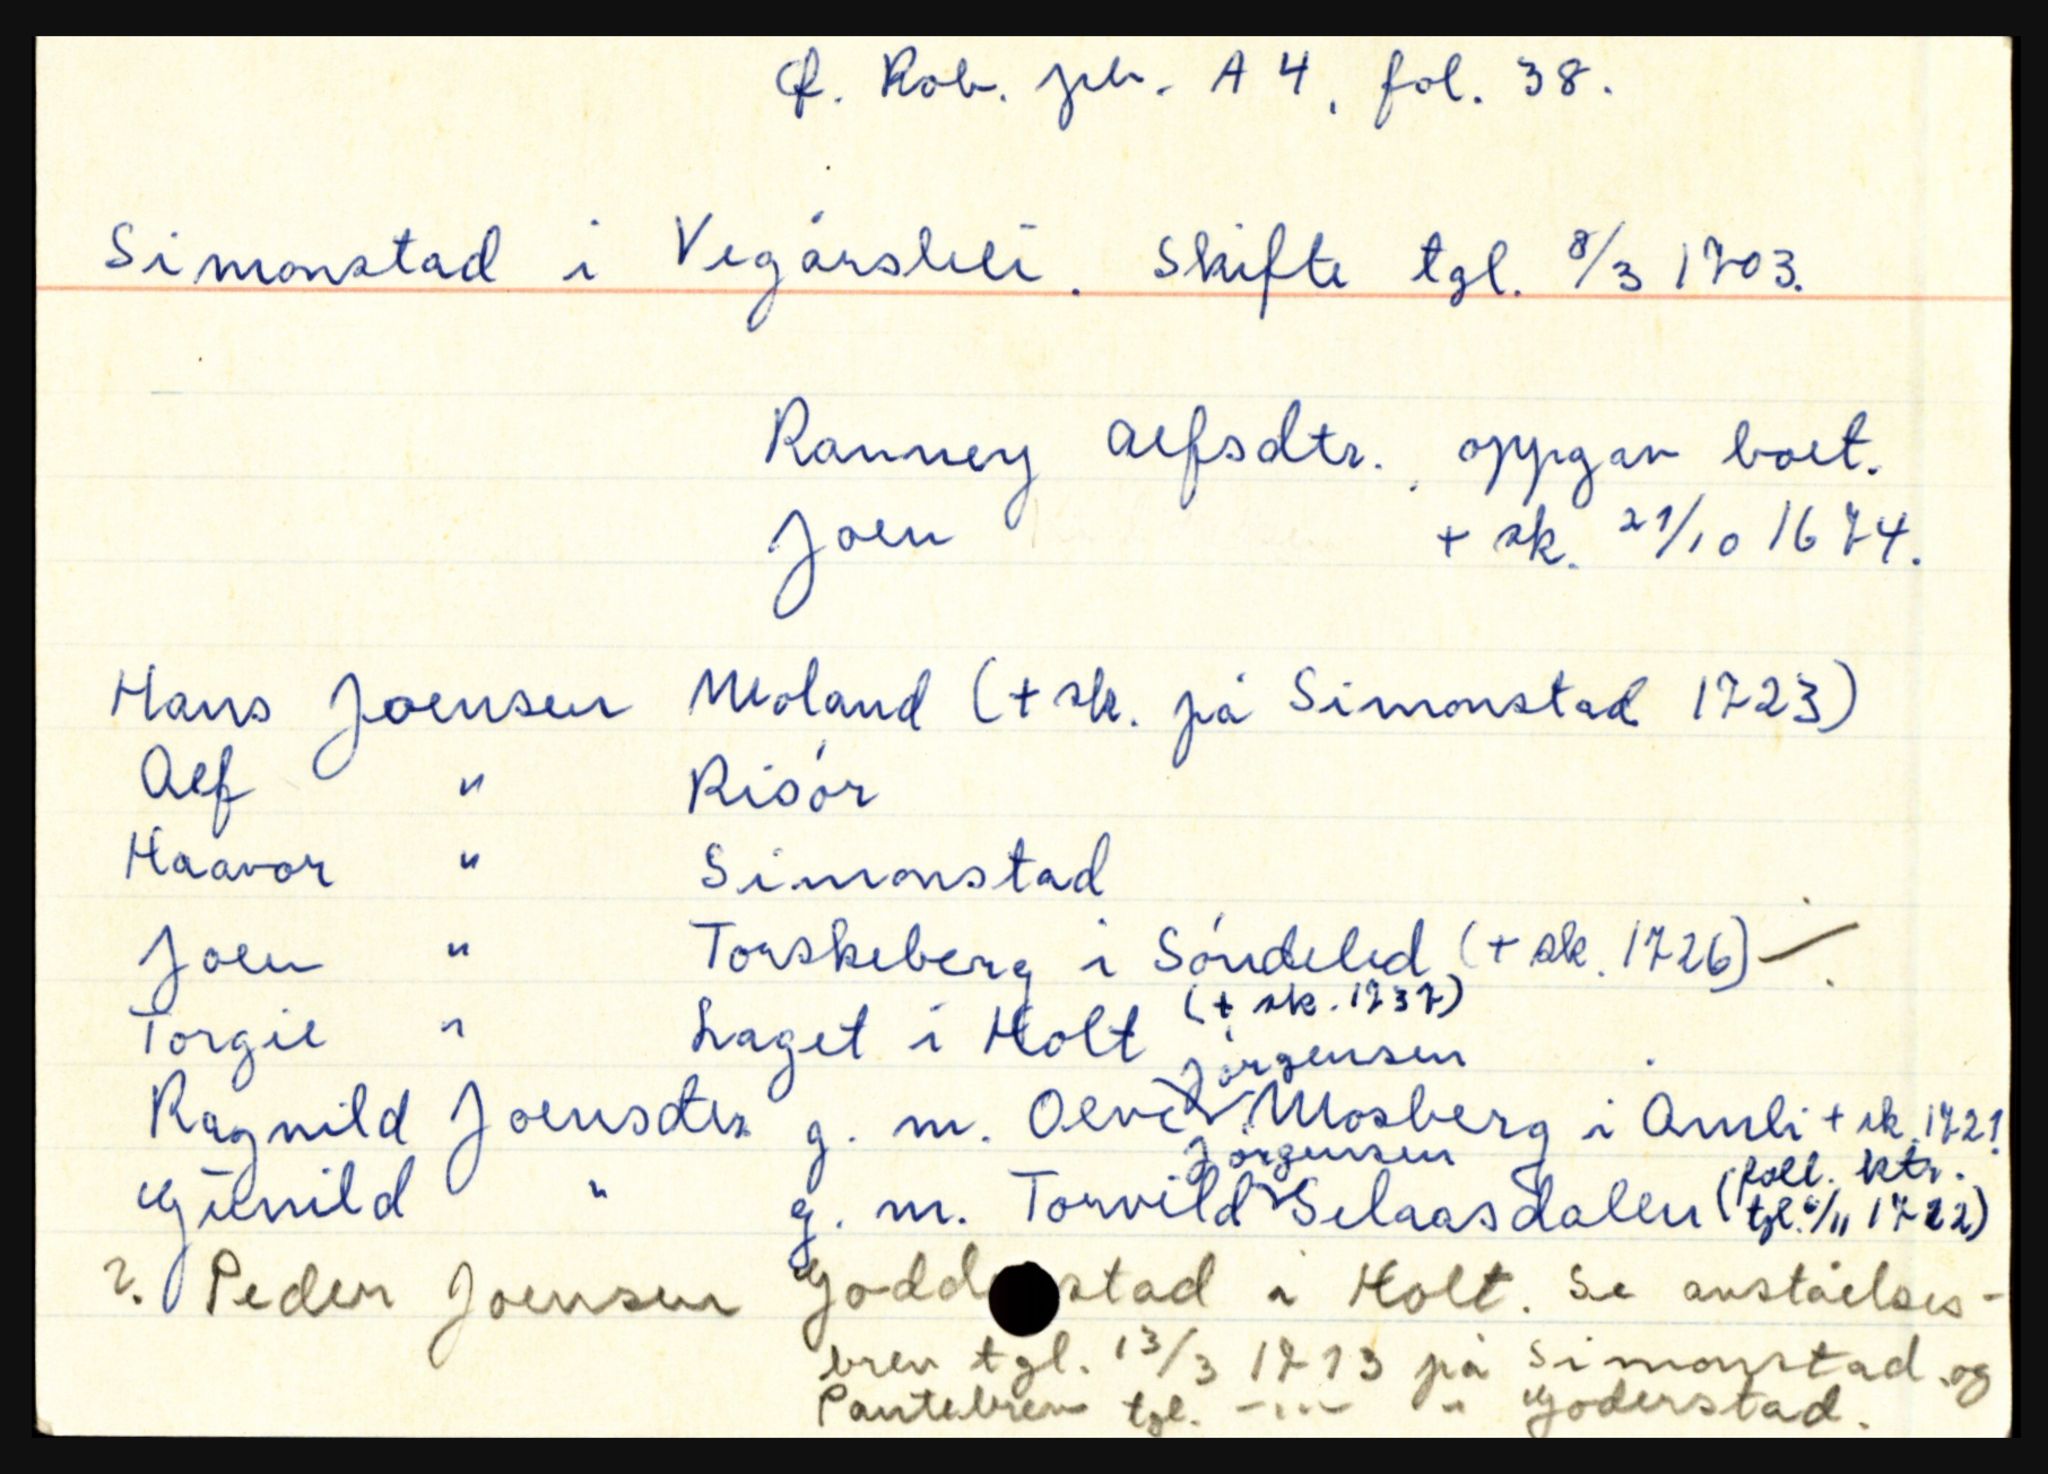 f. Rob. jb. A 4, fol. 38.
Simonstad i Vegårshei. Skifte tgl. 8/3 1703.
Ranney Alfsdtr. oppgav boet.
Joen + sk. 21/10 1674.
Hans Joensen Moland (+ sk. på Simonstad 1723)
Alf " Risór
Haavor " Simonstad
Joen " Torskeberg i Sóndeled (+ sk. 1726)
Torgie " Laget i Holt (+ sk. 1737)
Jórgensen
Ragnild Joensdtr g. m. Olve Mosberg i Amli + sk. 1721
Jórgensen
Gunild " g. m. Torvild Selaasdalen (foll. ktr. tgl. 6/11 1722)
?. Peder Joensen Godderstad i Holt. Se avståelses-
brev tgl. 13/3 1713 på Simonstad og
Pantebrev tgl. -"- " Goderstad.